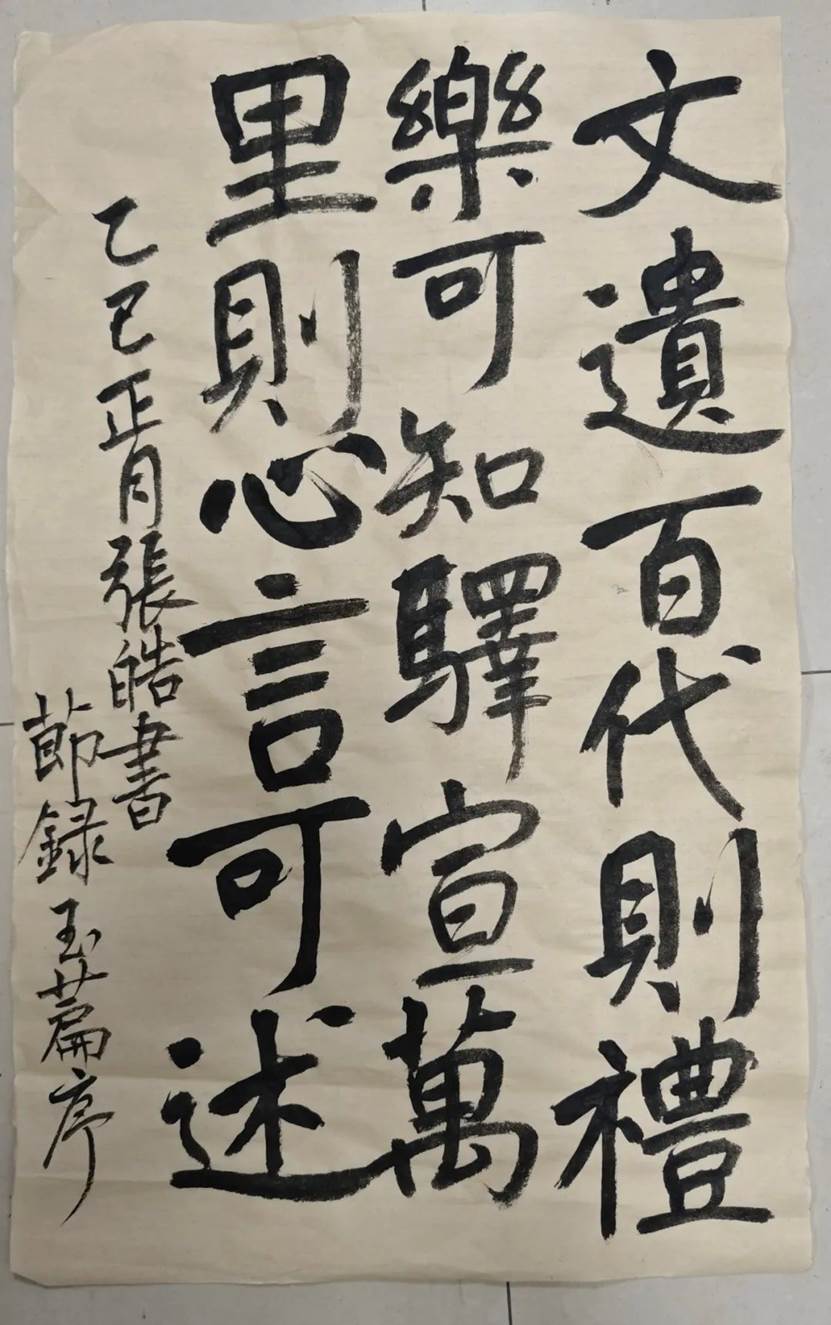 文遺百代則禮
樂可知驛宣萬
里則心言可述
乙巳正月張皓書
節録玉篇序